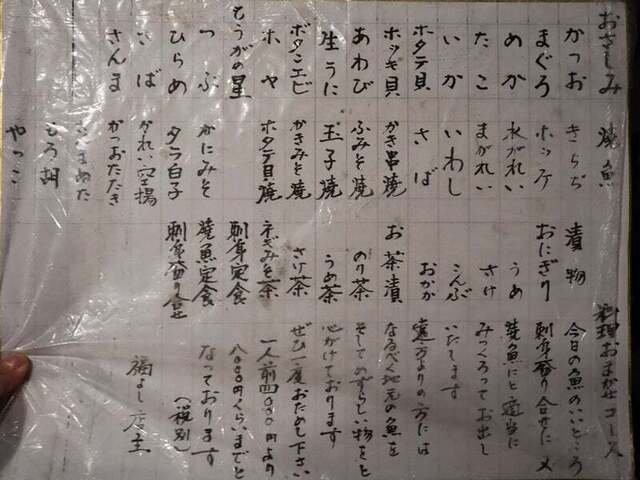 おさしみ
かつお
まぐろ
めか
たこ
いか
ホタテ貝
ホッキ貝
あわび
生うに
ボタンエビ
ホヤ
もうかの星
つぶ
ひらめ
さば
さんま
焼魚
きちぢ
ホッケ
水がれい
まがれい
いわし
さば
かき串焼
ふみそ焼
玉子焼
かきみそ焼
ホタテ貝焼
かにみそ
タラ白子
かれい空揚
かつおたたき
もろ胡
やっこ
漬物
おにぎり
うめ
さけ
こんぶ
おかか
お茶漬
のり茶
うめ茶
さけ茶
ネギみそ茶
刺身定食
焼魚定食
刺身盛り合せ
料理おまかせコース
今日の魚のいいところ
刺身盛り合せに 又
焼魚にと適当に
みつくろってお出し
いたします
遠方よりの方には
なるべく地元の魚を
そしてめずらしい物をと
心がけております
ぜひ一度おためし下さい
一人前四〇〇〇円より
八〇〇〇円くらいまでと
なっております
(税別)
福よし店主